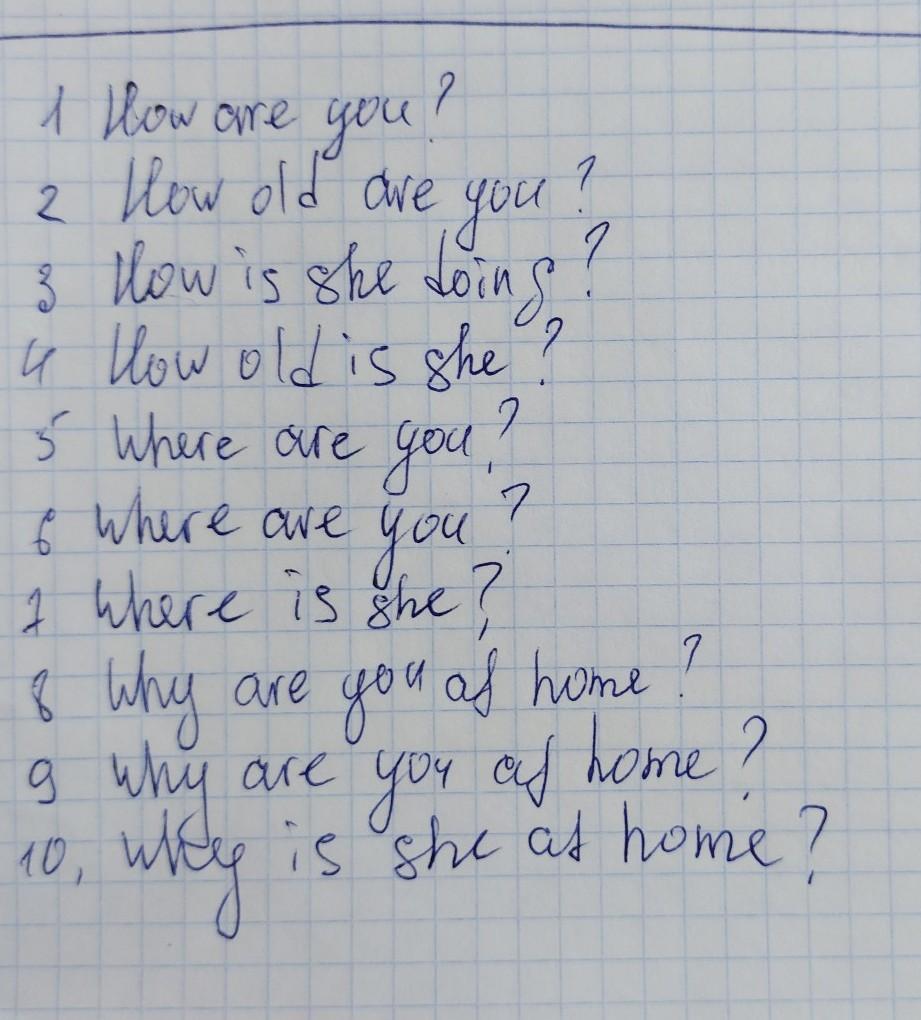 1 How are you?
2 How old are you?
3 How is she doing?
4 How old is she?
5 Where are you?
6 Where are you?
7 Where is she?
8 Why are you at home?
9 Why are you at home?
10, Why is she at home?